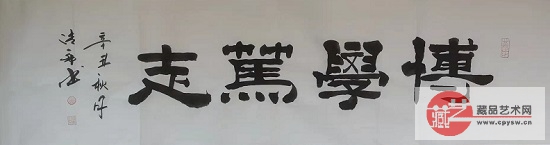 博學篤志
辛丑秋月
藏品艺术网
www.cpysw.cn